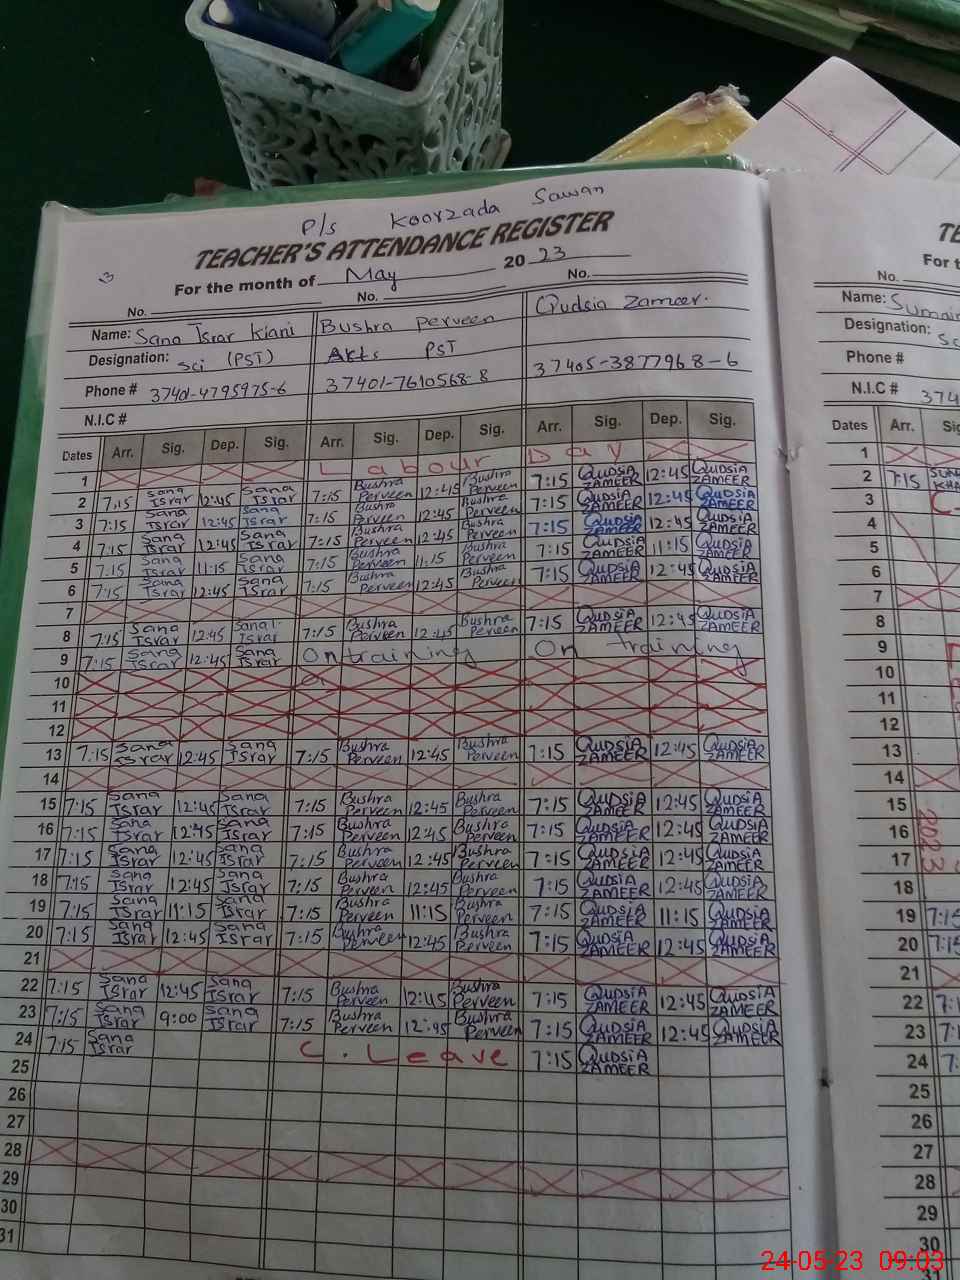 P/s Koorzada Sawan
TEACHER'S ATTENDANCE REGISTER
3 For the month of May 20 23
No. No. No.
Name: Sana Israr Kiani Bushra Perveen Qudsia Zameer.
Designation: Sci (PST) Arts PST
Phone # 37401-4795975-6 37401-7610568-8 37405-3877968-6
N.I.C #
Dates Arr. Sig. Dep. Sig. Arr. Sig. Dep. Sig. Arr. Sig. Dep. Sig.
1 Labour Day
2 7:15 Sana Israr 12:45 Sana Israr 7:15 Bushra Perveen 12:45 Bushra Perveen 7:15 QUDSIA ZAMEER 12:45 QUDSIA ZAMEER
3 7:15 Sana Israr 12:45 Sana Israr 7:15 Bushra Perveen 12:45 Bushra Perveen 7:15 QUDSIA ZAMEER 12:45 QUDSIA ZAMEER
4 7:15 Sana Israr 12:45 Sana Israr 7:15 Bushra Perveen 12:45 Bushra Perveen 7:15 QUDSIA ZAMEER 12:45 QUDSIA ZAMEER
5 7:15 Sana Israr 11:15 Sana Israr 7:15 Bushra Perveen 11:15 Bushra Perveen 7:15 QUDSIA ZAMEER 11:15 QUDSIA ZAMEER
6 7:15 Sana Israr 12:45 Sana Israr 7:15 Bushra Perveen 12:45 Bushra Perveen 7:15 QUDSIA ZAMEER 12:45 QUDSIA ZAMEER
7
8 7:15 Sana Israr 12:45 Sana Israr 7:15 Bushra Perveen 12:45 Bushra Perveen 7:15 QUDSIA ZAMEER 12:45 QUDSIA ZAMEER
9 7:15 Sana Israr 12:45 Sana Israr On training On training
10
11
12
13 7:15 Sana Israr 12:45 Sana Israr 7:15 Bushra Perveen 12:45 Bushra Perveen 7:15 QUDSIA ZAMEER 12:45 QUDSIA ZAMEER
14
15 7:15 Sana Israr 12:45 Sana Israr 7:15 Bushra Perveen 12:45 Bushra Perveen 7:15 QUDSIA ZAMEER 12:45 QUDSIA ZAMEER
16 7:15 Sana Israr 12:45 Sana Israr 7:15 Bushra Perveen 12:45 Bushra Perveen 7:15 QUDSIA ZAMEER 12:45 QUDSIA ZAMEER
17 7:15 Sana Israr 12:45 Sana Israr 7:15 Bushra Perveen 12:45 Bushra Perveen 7:15 QUDSIA ZAMEER 12:45 QUDSIA ZAMEER
18 7:15 Sana Israr 12:45 Sana Israr 7:15 Bushra Perveen 12:45 Bushra Perveen 7:15 QUDSIA ZAMEER 12:45 QUDSIA ZAMEER
19 7:15 Sana Israr 11:15 Sana Israr 7:15 Bushra Perveen 11:15 Bushra Perveen 7:15 QUDSIA ZAMEER 11:15 QUDSIA ZAMEER
20 7:15 Sana Israr 12:45 Sana Israr 7:15 Bushra Perveen 12:45 Bushra Perveen 7:15 QUDSIA ZAMEER 12:45 QUDSIA ZAMEER
21
22 7:15 Sana Israr 12:45 Sana Israr 7:15 Bushra Perveen 12:45 Bushra Perveen 7:15 QUDSIA ZAMEER 12:45 QUDSIA ZAMEER
23 7:15 Sana Israr 9:00 Sana Israr 7:15 Bushra Perveen 12:45 Bushra Perveen 7:15 QUDSIA ZAMEER 12:45 QUDSIA ZAMEER
24 7:15 Sana Israr C. Leave 7:15 QUDSIA ZAMEER
25
26
27
28
29
30
31
No.
Name:
Designation:
Phone #
N.I.C #
Dates Arr.
1
2 7:15
3
4
5
6
7
8
9
10
11
12
13
14
15
16
17
18
19 7:15
20 7:15
21
22
23
24
25
26
27
28
29
30
31
24-05-23 09:03